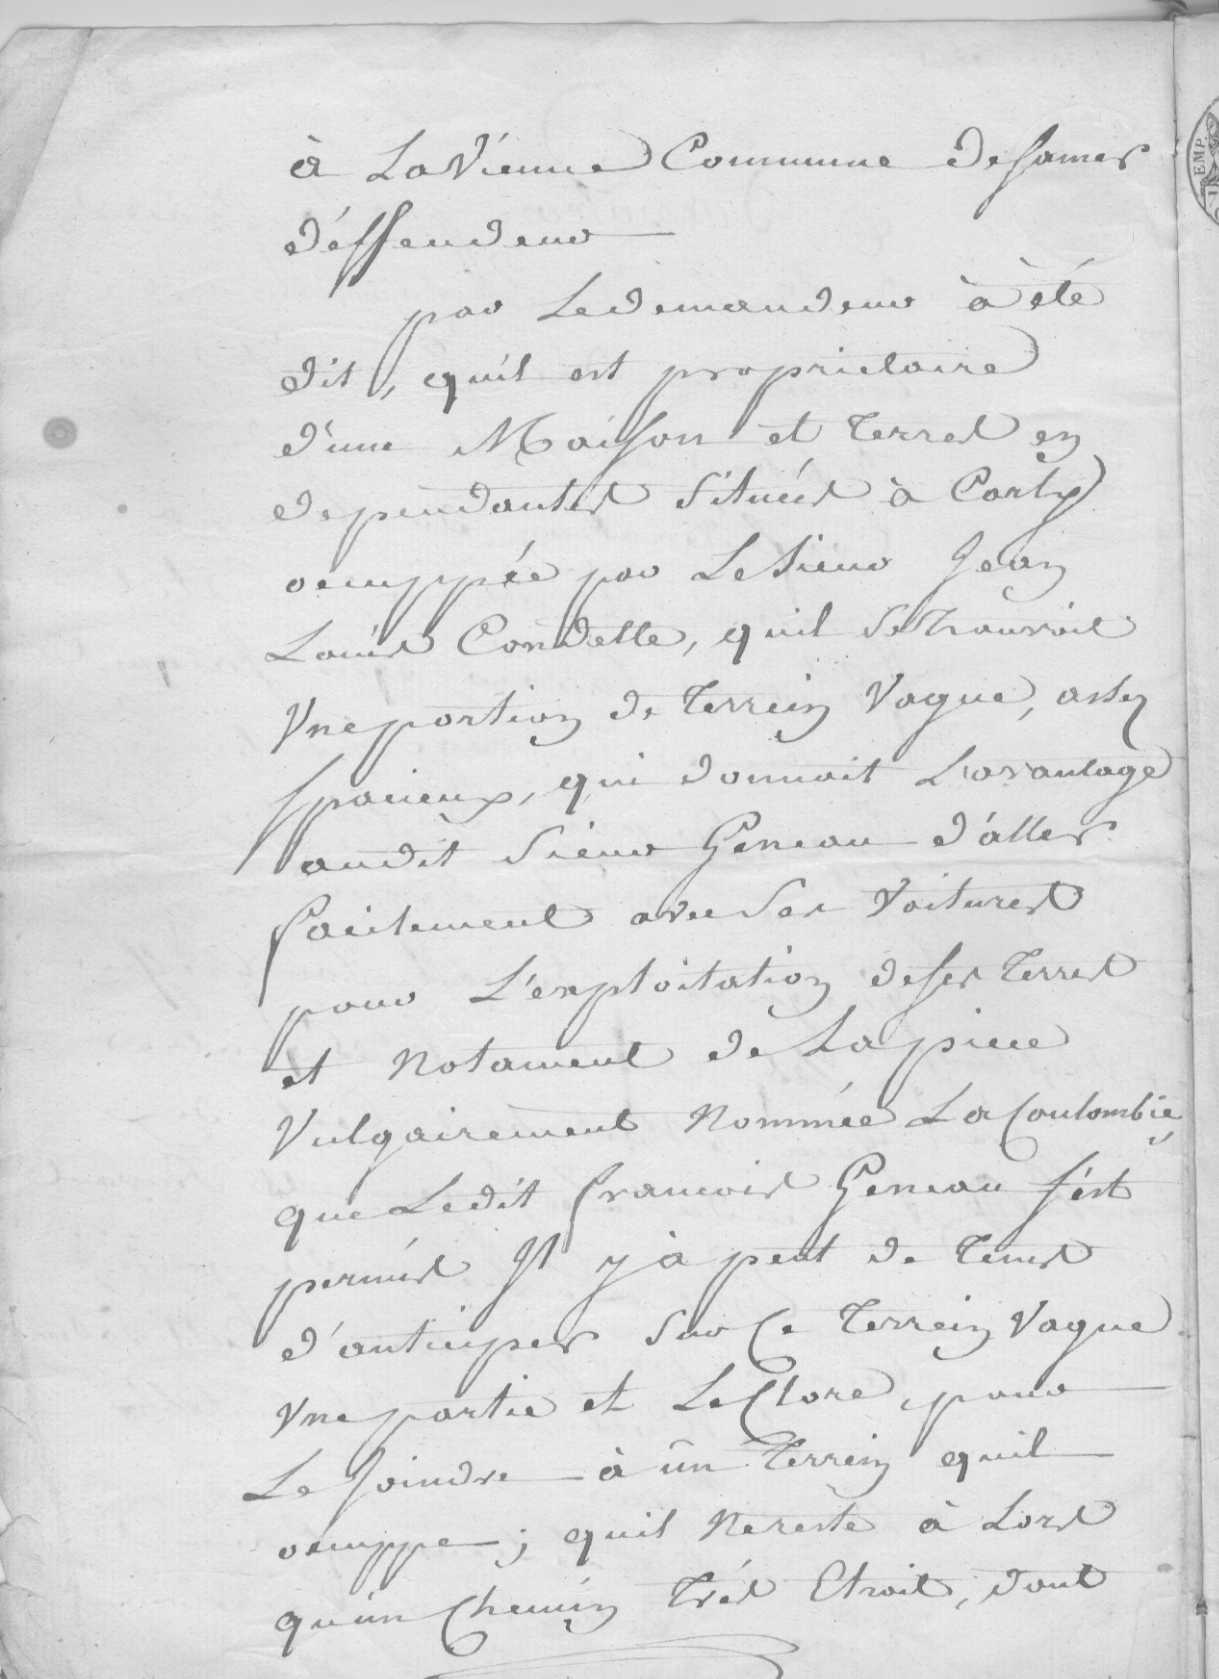 à La Vienne Commune de samer
déffendeur
par Le demandeur à été
dit, qu'il est proprietaire
d'une Maison et terres en
dependantes située à Carly
occuppée par Le Sieur Jean
Louis Condette, quil se trouvoit
Une portion de terrein Vague, assez
spacieux, qui donnoit L'avantage
audit Sieur Geneau d'aller
facilement avec Ses Voitures
pour L'exploitation de ses terres
et Notament de La piece
Vulgairement Nommée La Coulombié,
que Ledit francois Geneau s'est
permis Il y à peut de tems
d'anticiper Sur Ce terrein Vague
Une partie et Le Clore, pour
Le Joindre à un terrein quil
occuppe; quil Ne reste à Lors
qu'un Chemin trés Etroit, dont
EMP.